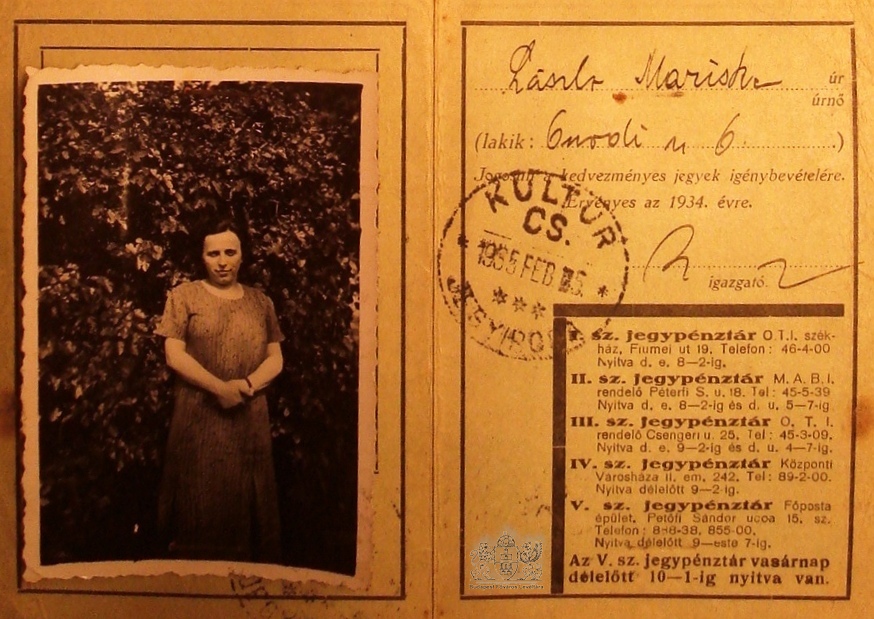 László Mariska úr
úrnő
(lakik: u 6.)
Jogosult a kedvezményes jegyek igénybevételére.
Érvényes az 1934. évre.
igazgató.
KULTUR
CS.
FEB
JEGYIRODA
I. sz. jegypénztár O.T.I. szék-
ház, Fiumei ut 19. Telefon: 46-4-00
Nyitva d. e. 8—2-ig.
II. sz. jegypénztár M. A. B. I.
rendelő Péterfi S. u. 18. Tel: 45-5-39
Nyitva d. e. 8—2-ig és d. u. 5—7-ig
III. sz. jegypénztár O. T. I.
rendelő Csengeri u. 25, Tel: 45-3-09.
Nyitva d. e. 9—2-ig és d. u. 4—7-ig.
IV. sz. jegypénztár Központi
Városháza II. em. 242, Tel: 89-2-00.
Nyitva délelőtt 9—2-ig.
V. sz. jegypénztár Főposta
épület, Petőfi Sándor ucca 15. sz.
Telefon: 855-00.
Nyitva délelőtt 9—este 7-ig.
Az V. sz. jegypénztár vasárnap
délelőtt 10—1-ig nyitva van.